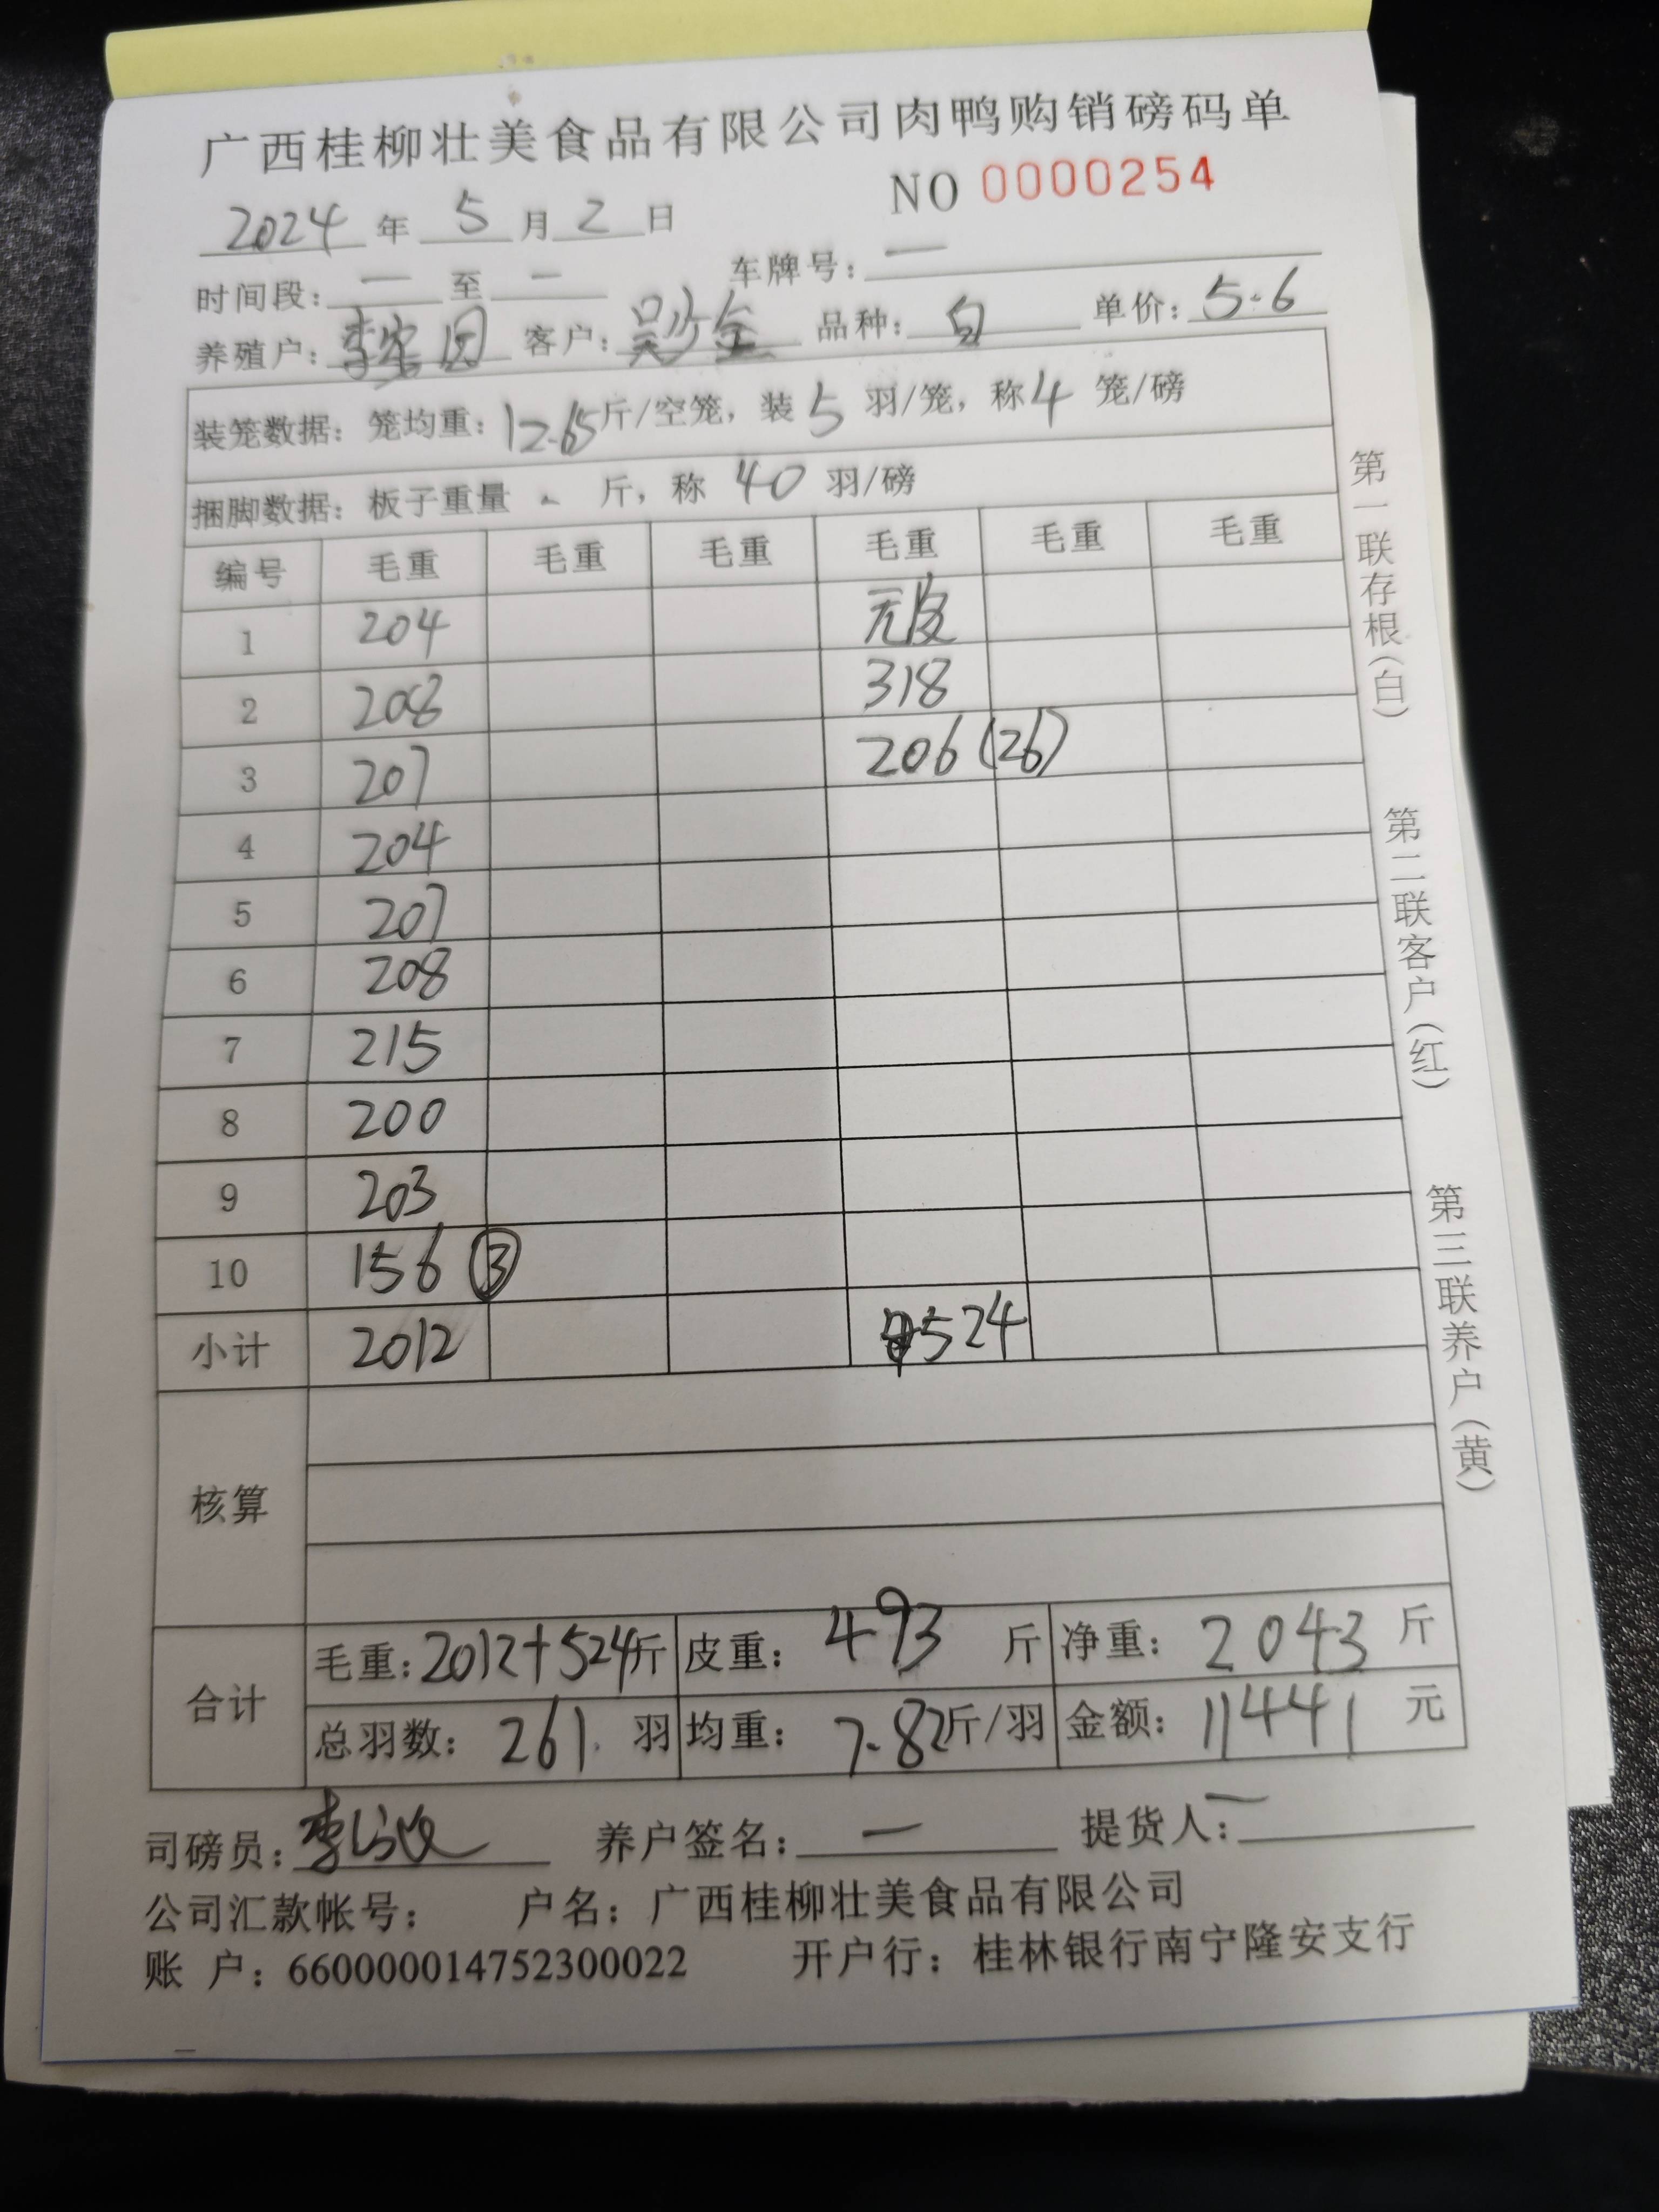 广西桂柳壮美食品有限公司肉鸭购销磅码单
NO 0000254
2024 年 5 月 2 日
时间段: 一 至 一 车牌号: 一
养殖户: 李 客户: 吴 品种: 白 单价: 5.6
装笼数据: 笼均重: 12.65 斤/空笼, 装 5 羽/笼, 称 4 笼/磅
捆脚数据: 板子重量 斤, 称 40 羽/磅
编号 毛重 毛重 毛重 毛重 毛重 毛重
1 204 无皮
2 208 318
3 207 206 (26)
4 204
5 207
6 208
7 215
8 200
9 203
10 156 ③
小计 2012 524
核算
合计
毛重: 2012+524 斤 皮重: 493 斤 净重: 2043 斤
总羽数: 261 羽 均重: 7.82 斤/羽 金额: 11441 元
司磅员: 李 养户签名: 一 提货人: 一
公司汇款帐号: 户名: 广西桂柳壮美食品有限公司
账 户: 660000014752300022 开户行: 桂林银行南宁隆安支行
第一联存根(白)
第二联客户(红)
第三联养户(黄)